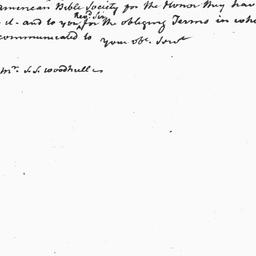 American Bible Society for the Honor they hav
d- and to you Revd. Sir, for the obliging Terms in whi
communicated to your obt. Servt
Mr. S. S. Woodhull